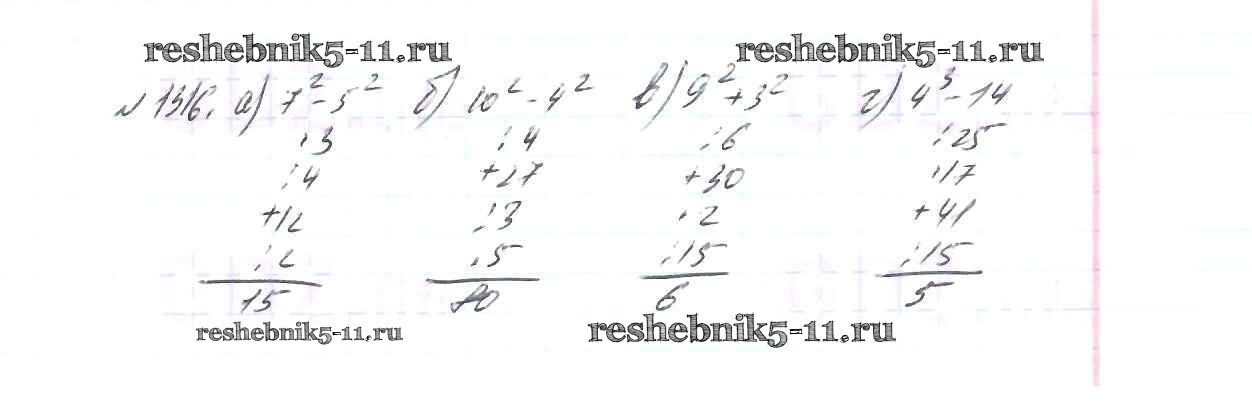 reshebnik5-11.ru reshebnik5-11.ru
№1316. а) 7² - 5² б) 10² - 4² в) 9² + 3² г) 4³ - 14
·3 :4 :6 :25
:4 +27 +30 ·17
+12 :3 ·2 +41
:2 ·5 :15 :15
15 80 6 5
reshebnik5-11.ru reshebnik5-11.ru